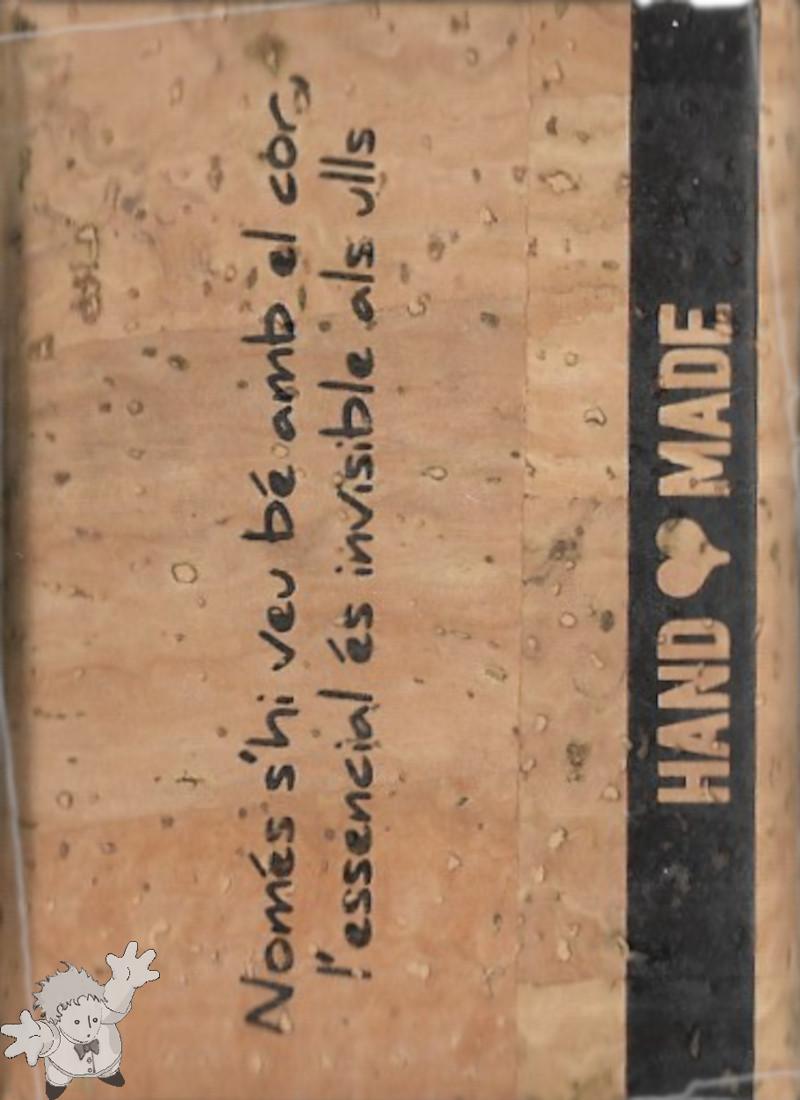 Només s'hi veu bé amb el cor,
l'essencial és invisible als ulls
HAND MADE